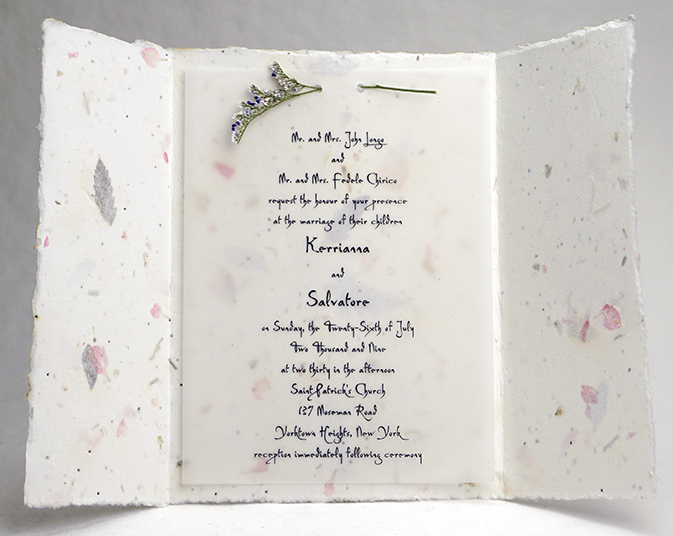 Mr. and Mrs. John Longo
and
Mr. and Mrs. Fedele Chirico
request the honour of your presence
at the marriage of their children
Kerrianna
and
Salvatore
on Sunday, the Twenty-Sixth of July
Two Thousand and Nine
at two thirty in the afternoon
Saint Patrick's Church
137 Moseman Road
Yorktown Heights, New York
reception immediately following ceremony